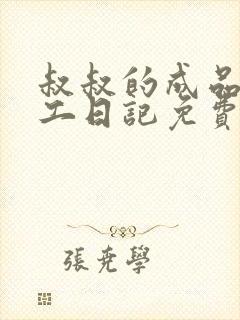 叔叔的成品
工日記免費
張堯學